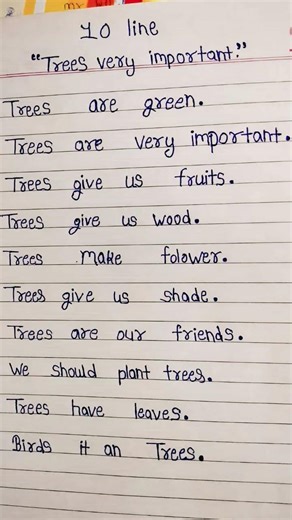 10 line
"Trees very important."
Trees are green.
Trees are very important.
Trees give us fruits.
Trees give us wood.
Trees make folower.
Trees give us shade.
Trees are our friends.
We should plant trees.
Trees have leaves.
Birds it an Trees.